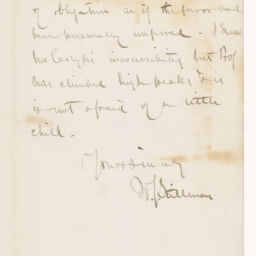 of obligation as if the favor had
been personally conferred. I know
Mr Carlyle's inaccessibility but Prof
has climbed high peaks & is
is not afraid of a little
chill.
Yours sincerely
W J Stillman